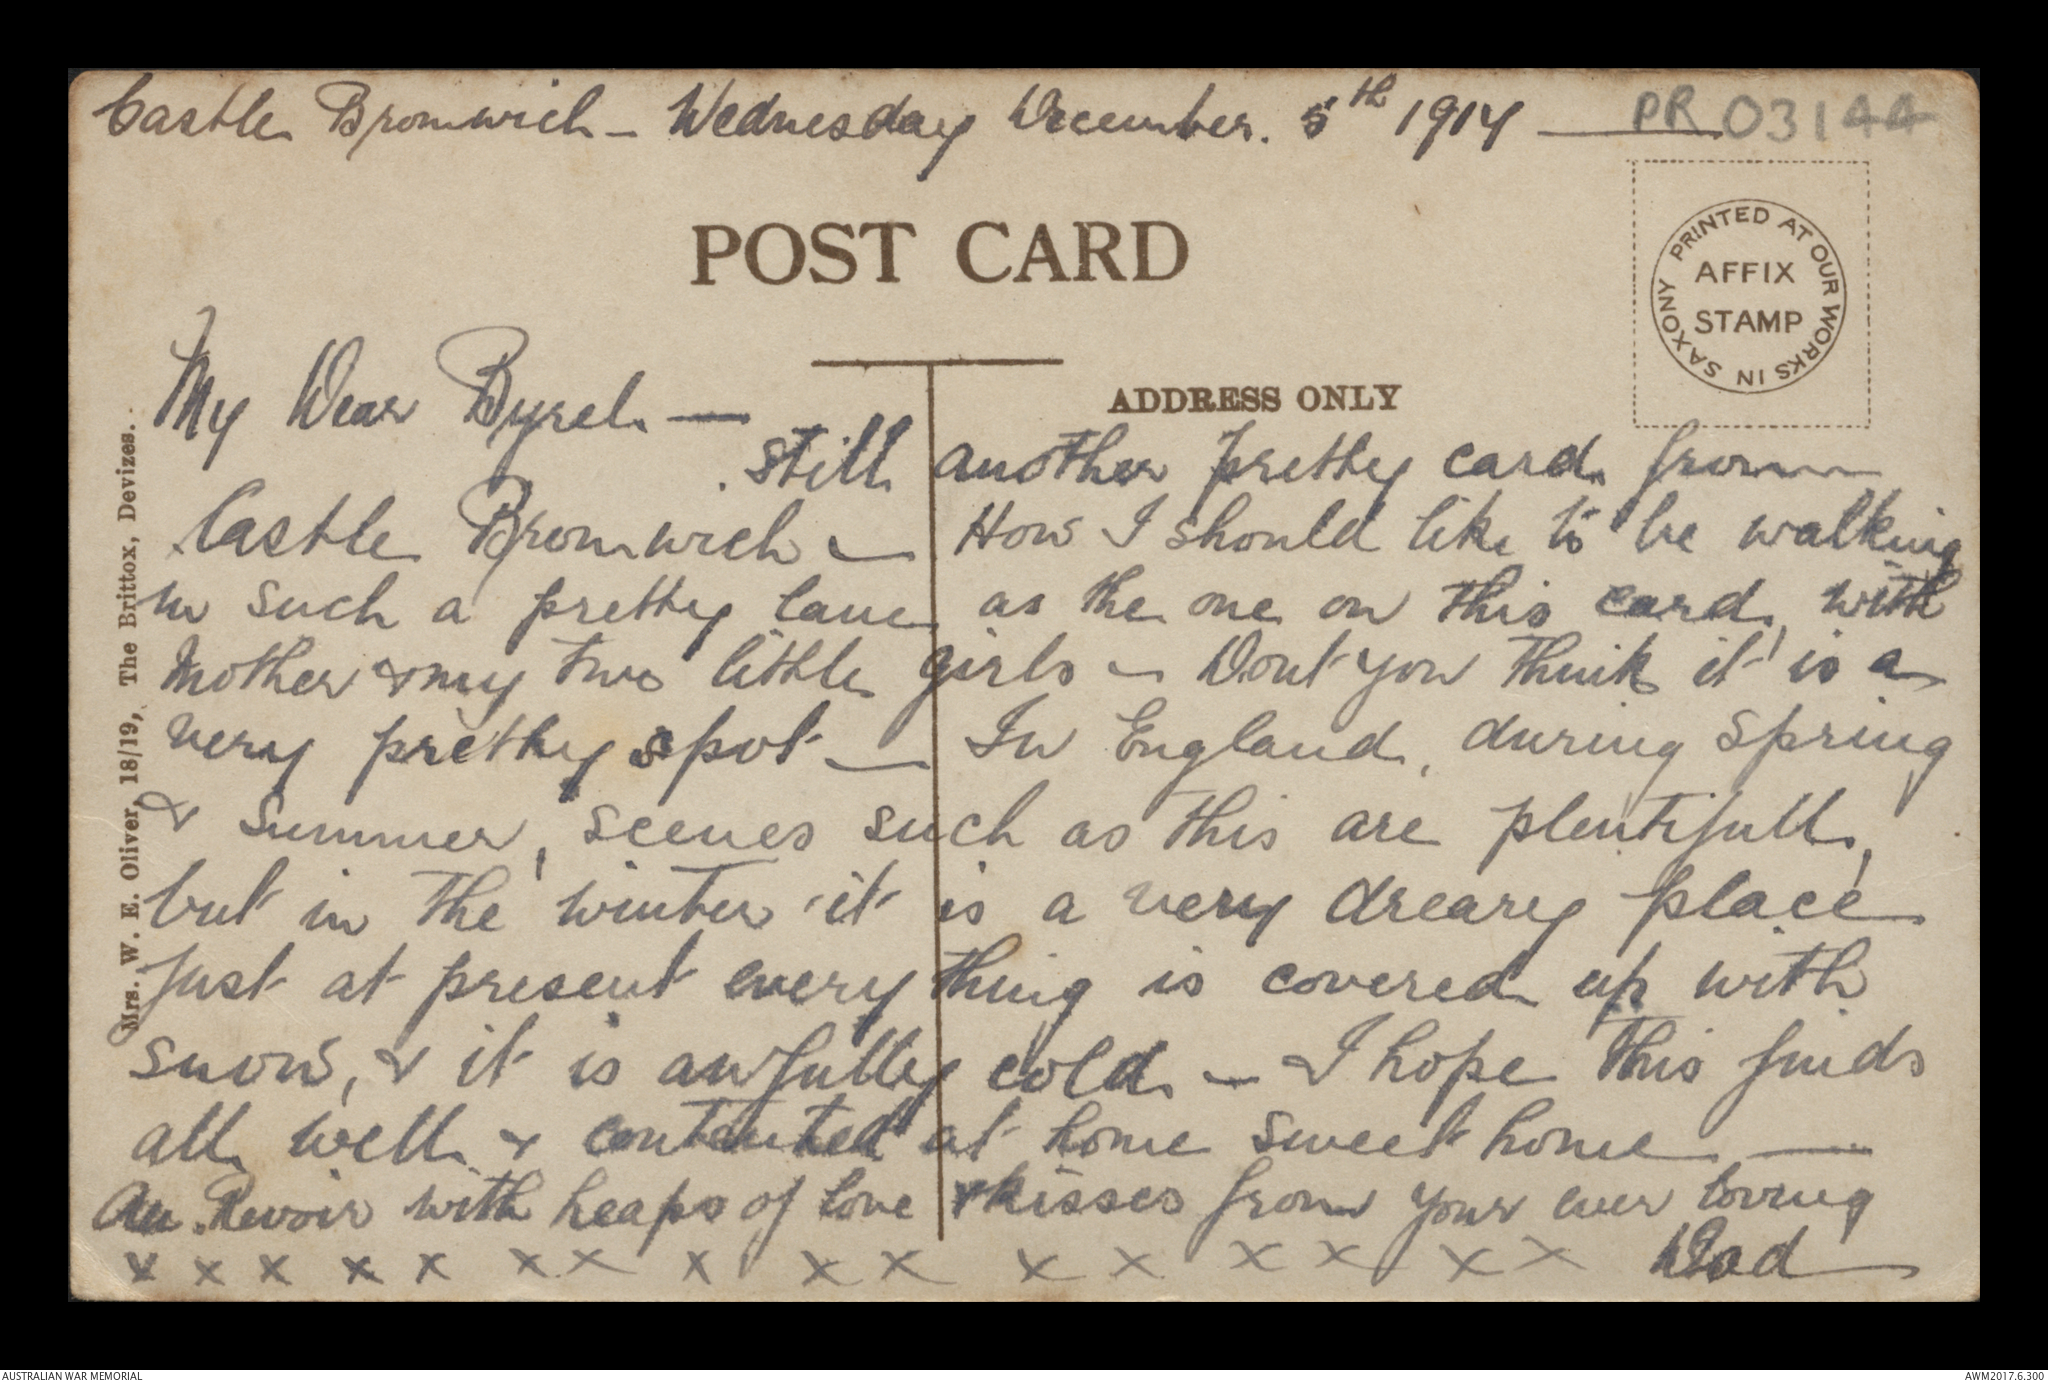 Castle Bromwich - Wednesday December. 5th 1917
PR 03144
POST CARD
PRINTED AT OUR WORKS IN SAXONY
AFFIX
STAMP
ADDRESS ONLY
Mrs. W. E. Oliver, 18/19, The Brittox, Devizes.
My Dear Byrel. —
still another pretty card from
Castle Bromwich — How I should like to be walking
in such a pretty lane as the one on this card, with
Mother & my two little girls — Dont you think it is a
very pretty spot — In England, during Spring
& Summer, scenes such as this are plentifull,
but in the winter it is a very dreary place
Just at present every thing is covered up with
snow, & it is awfully cold. — I hope this finds
all well & contented at home sweet home —
Au Revoir with heaps of love & kisses from your ever loving
x x x x x x x x x x x x x x x x Dad
AUSTRALIAN WAR MEMORIAL
AWM2017.6.300